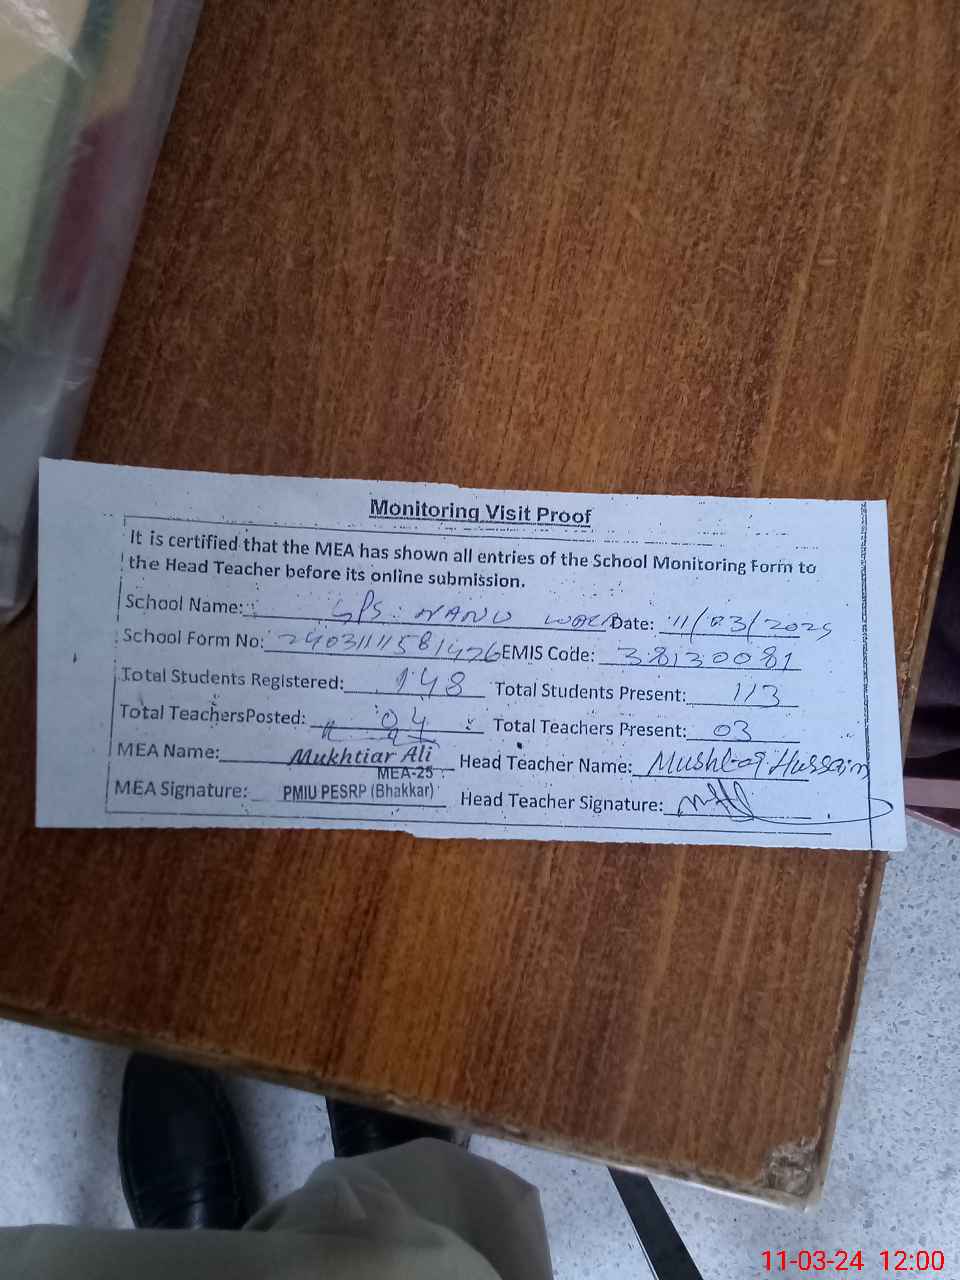 Monitoring Visit Proof
It is certified that the MEA has shown all entries of the School Monitoring Form to
the Head Teacher before its online submission.
School Name: GPS: NANU Date: 11/03/2024
School Form No: EMIS Code: 38130081
Total Students Registered: 148 Total Students Present: 113
Total TeachersPosted: 04 Total Teachers Present: 03
MEA Name: Mukhtiar Ali Head Teacher Name: Mushtaq Hussain
MEA-25
MEA Signature: PMIU PESRP (Bhakkar) Head Teacher Signature:
11-03-24 12:00